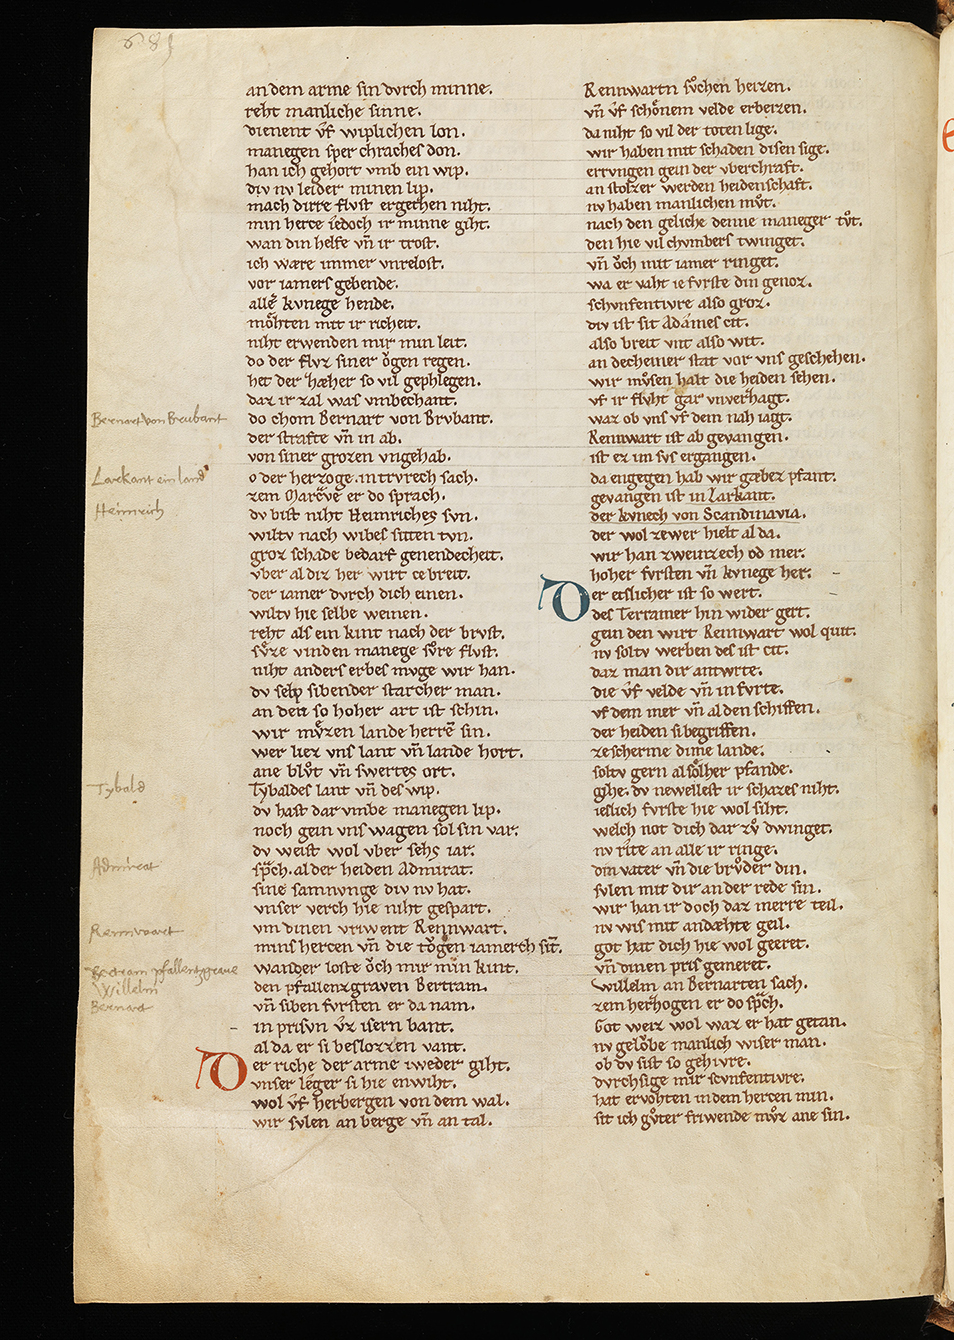 681
an dem arme sin dvrch minne.
reht manliche sinne.
dienent vͤf wiplichen lon.
manegen sper chraches don.
han ich gehort vmb ein wip.
div nv leider minen lip.
mach dirre flvst ergechen niht.
min herce iedoch ir minne giht.
wan din helfe vn̄ ir trost.
ich wære immer vnrelost.
vor iamers gebende.
alle kvnege hende.
moͤhten mit ir richeit.
niht erwenden mir min leit.
do der flvz siner oͮgen regen.
het der hæher so vil gephlegen.
daz ir zal was vmbechant.
do chom Bernart von Brvbant.
der strafte vn̄ in ab.
von siner grozen vngehab.
o der herzoge. in trvrech sach.
zem Mareͮve er do sprach.
dv bist niht Heimriches svn.
wiltv nach wibes sitten tvn.
groz schade bedarf genendecheit.
vber al diz her wirt ce breit.
der iamer dvrch dich einen.
wiltv hie selbe weinen.
reht als ein kint nach der brvst.
svͦze vinden manege svͦre flvst.
niht anders erbes mvge wir han.
dv selp sibender starcher man.
an den so hoher art ist schin.
wir mvͤzen lande herre sin.
wer liez vns lant vn̄ lande hort.
ane blvͦt vn̄ swertes ort.
Tybaldes lant vn̄ des wip.
dv hast dar vmbe manegen lip.
noch gein vns wagen sol sin var.
dv weist wol vber sehs iar.
sp̄ch. al der heiden Admirat.
sine samnvnge div nv hat.
vnser verch hie niht gespart.
vm dinen vriwent Rennwart.
mins hercen vn̄ die toͮgen iamerch sit.
wander loste oͮch mir min kint.
den pfallenzgraven Bertram.
vn̄ siben fvrsten er da nam.
in prisvn vͤz isern bant.
al da er si beslozzen vant.
Der riche der arme iweder giht.
vnser leger si hie enwiht.
wol vͤf herbergen von dem wal.
wir svlen an berge vn̄ an tal.
Rennwartn svͦchen herzen.
vn̄ vͤf schoͤnem velde erberzen.
da niht so vil der toten lige.
wir haben mit schaden disen sige.
errvngen gein der vberchraft.
an stolzer werden heidenschaft.
nv haben manlichen mvͦt.
nach den geliche denne maneger tvͦt.
den hie vil chvmbers twinget.
vn̄ oͮch mit iamer ringet.
wa er vaht ie fvrste din genoz.
schvnfentivre also groz.
div ist sit Adames cit.
also breit vnt also wit.
an decheiner stat vor vns geschehen.
wir mvͤsen halt die heiden sehen.
vf ir flvht gar vnverhagt.
waz ob vns vf dem nah iagt.
Rennwart ist ab gevangen.
ist ez im svs ergangen.
da engegen hab wir gæbez pfant.
gevangen ist in Larkant.
der kvnech von Scandinavia.
der wol zewer hielt al da.
wir han zweinzech od mer.
hoher fvrsten vn̄ kvnege her.
Der etslicher ist so wert.
des Terramer hin wider gert.
gein den wirt Rennwart wol quit.
nv soltv werben des ist cit.
daz man dir antwrte.
die vͤf velde vn̄ in fvrte.
vf dem mer vn̄ al den schiffen.
der heiden si begriffen.
ze scherme dime lande.
soltv gern al soͤlher pfande.
gihe. dv newellest ir schazes niht.
ieslich fvrste hie wol siht.
welch not dich dar zvͦ dwinget.
nv rite an alle ir ringe.
din vater vn̄ die brvͦder din.
svlen mit dir an der rede sin.
wir han ir doch daz merre teil.
nv wis mit andæhte geil.
got hat dich hie wol geeret.
vn̄ dinen pris gemeret.
Willelm an Bernarten sach.
zem herhogen er do sp̄ch.
Got weiz wol waz er hat getan.
nv geloͮbe manlich wiser man.
ob dv sist so gehivre.
dvrchsige mir scvnfentivre.
hat ervohten in dem hercen min.
sit ich gvͦter friwende mvͦz ane sin.
Bernart von Brubant
Larkant ein land
Heimrich
Tybald
Admirat
Rennwart
Bertram pfallentzgrave
Willelm
Bernart